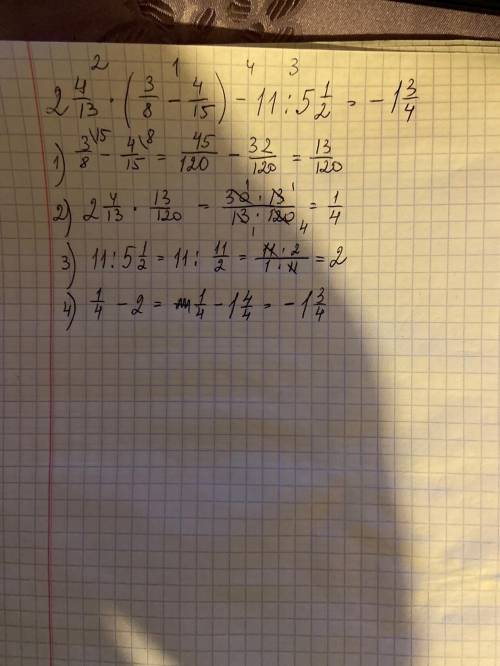 2 1 4 3
2 4/13 · (3/8 - 4/15) - 11 : 5 1/2 = -1 3/4
1) 3/8 \15 - 4/15 \8 = 45/120 - 32/120 = 13/120
2) 2 4/13 · 13/120 = 30 · 13/13 · 120 = 1/4
3) 11 : 5 1/2 = 11 : 11/2 = 11 · 2/1 · 11 = 2
4) 1/4 - 2 = 1/4 - 1 4/4 = -1 3/4